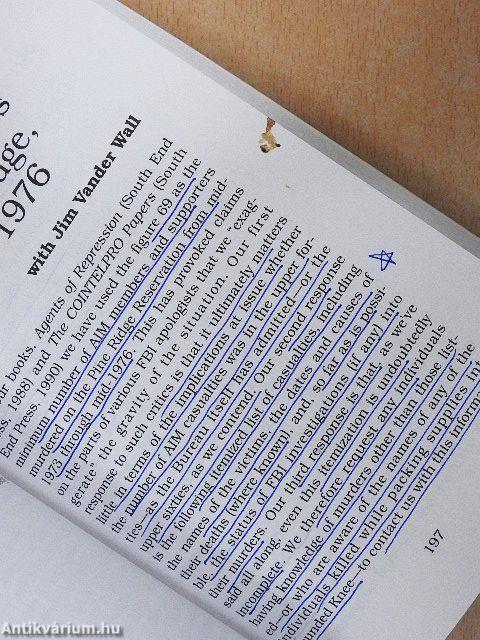 s
dge,
1976
with Jim Vander Wall
our books, Agents of Repression (South End
ss, 1988) and The COINTELPRO Papers (South
End Press, 1990) we have used the figure 69 as the
minimum number of AIM members and supporters
murdered on the Pine Ridge Reservation from mid-
1973 through mid-1976. This has provoked claims
on the parts of various FBI apologists that we "exag-
gerate" the gravity of the situation. Our first
response to such critics is that it ultimately matters
little in terms of the implications at issue whether
the number of AIM casualties was in the upper for-
ties—as the Bureau itself has admitted—or the
upper sixties, as we contend. Our second response
is the following itemized list of casualties, including
the names of the victims, the dates and causes of
their deaths (where known), and, so far as is possi-
ble, the status of FBI investigations (if any) into
their murders. Our third response is that, as we've
said all along, even this itemization is undoubtedly
incomplete. We therefore request any individuals
having knowledge of murders other than those list-
ed—or who are aware of the names of any of the
dividuals killed while packing supplies into
unded Knee—to contact us with this inform
197
Antikvárium.hu